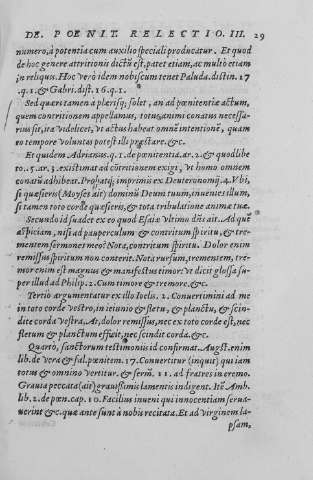 DE. POENIT. RELECTIO. III. 29
numero, à potentia cum auxilio speciali producatur. Et quod
de hoc genere attritionis dictũ est, patet etiam, ac multò etiam
in reliquis. Hoc verò idem nobiscum tenet Paluda. distin. 17
.q.1. & Gabri. dist. 16. q.1.
Sed quæstamen a plerisq; solet, an ad pœnitentiæ actum,
quem contritionem appellamus, totus animi conatus necessa-
rius sit, ita videlicet, vt actus habeat omnē intentionē, quam
eo tempore voluntas potest illi præstare. &c.
Et quidem Adrianus. q.1. de pœnitentia. ar. 2. & quodlibe
to. 5. ar. 3. existimat ad cōtritionem exigi, vt homo omnem
conatũ adhibeat. imprimis ex Deuteronomij. 4. Vbi,
si quæsieris (Moyses ait) dominũ Deum tuum, inuenies illum,
si tamen toto corde quæsieris, & tota tribulatione animæ tuæ.
Secundo id suadet ex eo quod Esaiæ vltimo dñs ait. Ad quē
aspiciam, nisi ad pauperculum & contritum spiritu, & tre-
mentem sermones meos? Nota, contritum spiritu. Dolor enim
remissus spiritum non conterit. Nota rursum, trementem, tre-
mor enim est magnus & manifestus timor: vt dicit glossa su-
per illud ad Philip. 2. Cum timore & tremore. &c.
Tertio argumentatur ex illo Ioelis. 2. Conuertimini ad me
in toto corde vestro, in ieiunio & fletu, & planctu, & scin-
dite corda vestra. At, dolor remissus, nec ex toto corde est, nec
fletum & planctum efficit, nec scindit corda. &c.
Quarò, sanctorum testimonijs id confirmat. August. enim
lib. de vera & fal. pœnitem. 17. Conuertitur (inquit) qui iam
totus & omnino vertitur. & serm. 11. ad fratres in eremo.
Grauia peccata (ait) grauissimis lamentis indigent. Itē Amb.
lib. 2. de pœn. cap. 10. Facilius inueni qui innocentiam serua-
uerint &c. quæ ante sunt à nobis recitata. Et ad virginem la-
psam,